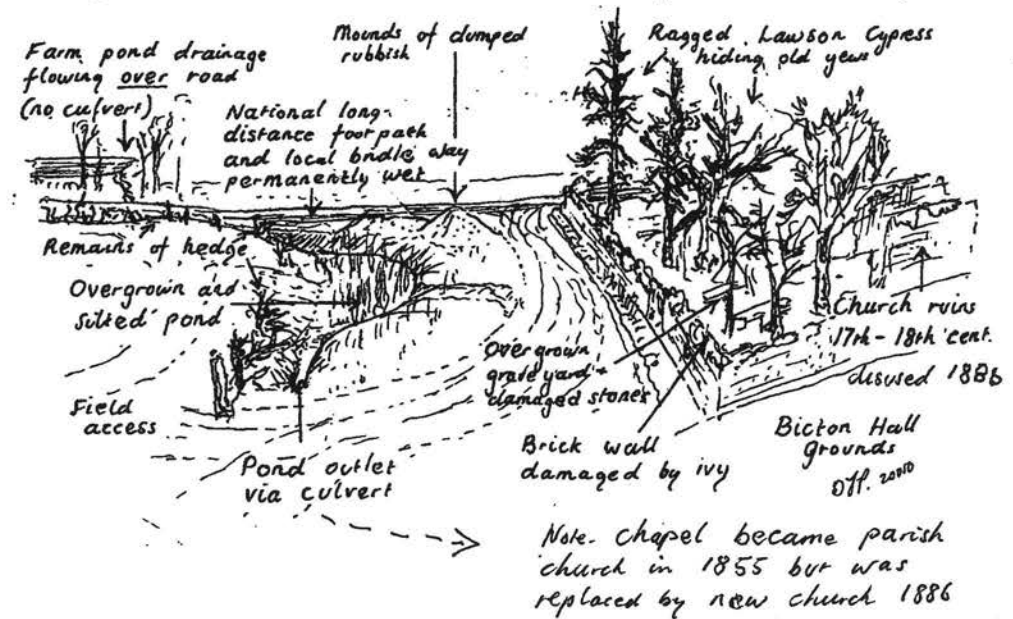 Farm pond drainage
flowing over road
(no culvert)
Mounds of dumped
rubbish
Ragged Lawson Cypress
hiding old yews
National long-
distance footpath
and local bridle way
permanently wet
Remains of hedge
Overgrown and
silted pond
Field
access
Pond outlet
via culvert
Overgrown
graveyard +
damaged stones
Brick wall
damaged by ivy
Church ruins
17th - 18th cent.
disused 1886
Bicton Hall
grounds
Note. chapel became parish
church in 1855 but was
replaced by new church 1886